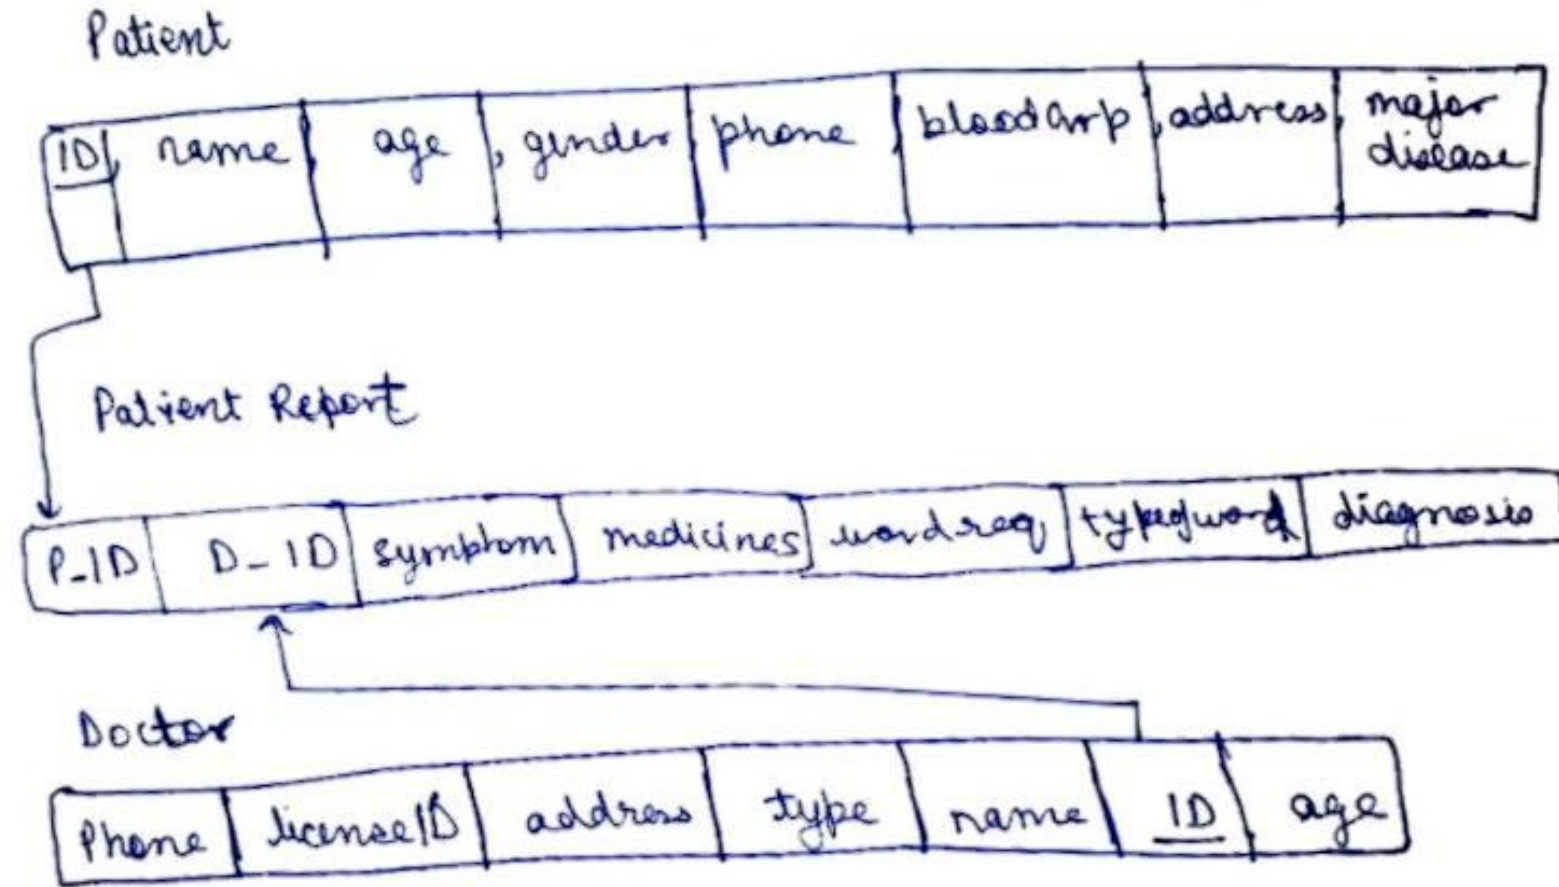 Patient
ID, name age, gender phone bloodGrp, address, major disease
Patient Report
P_ID D_ID symptom medicines wardreq typeofward diagnosis
Doctor
Phone licenseID address type name ID age